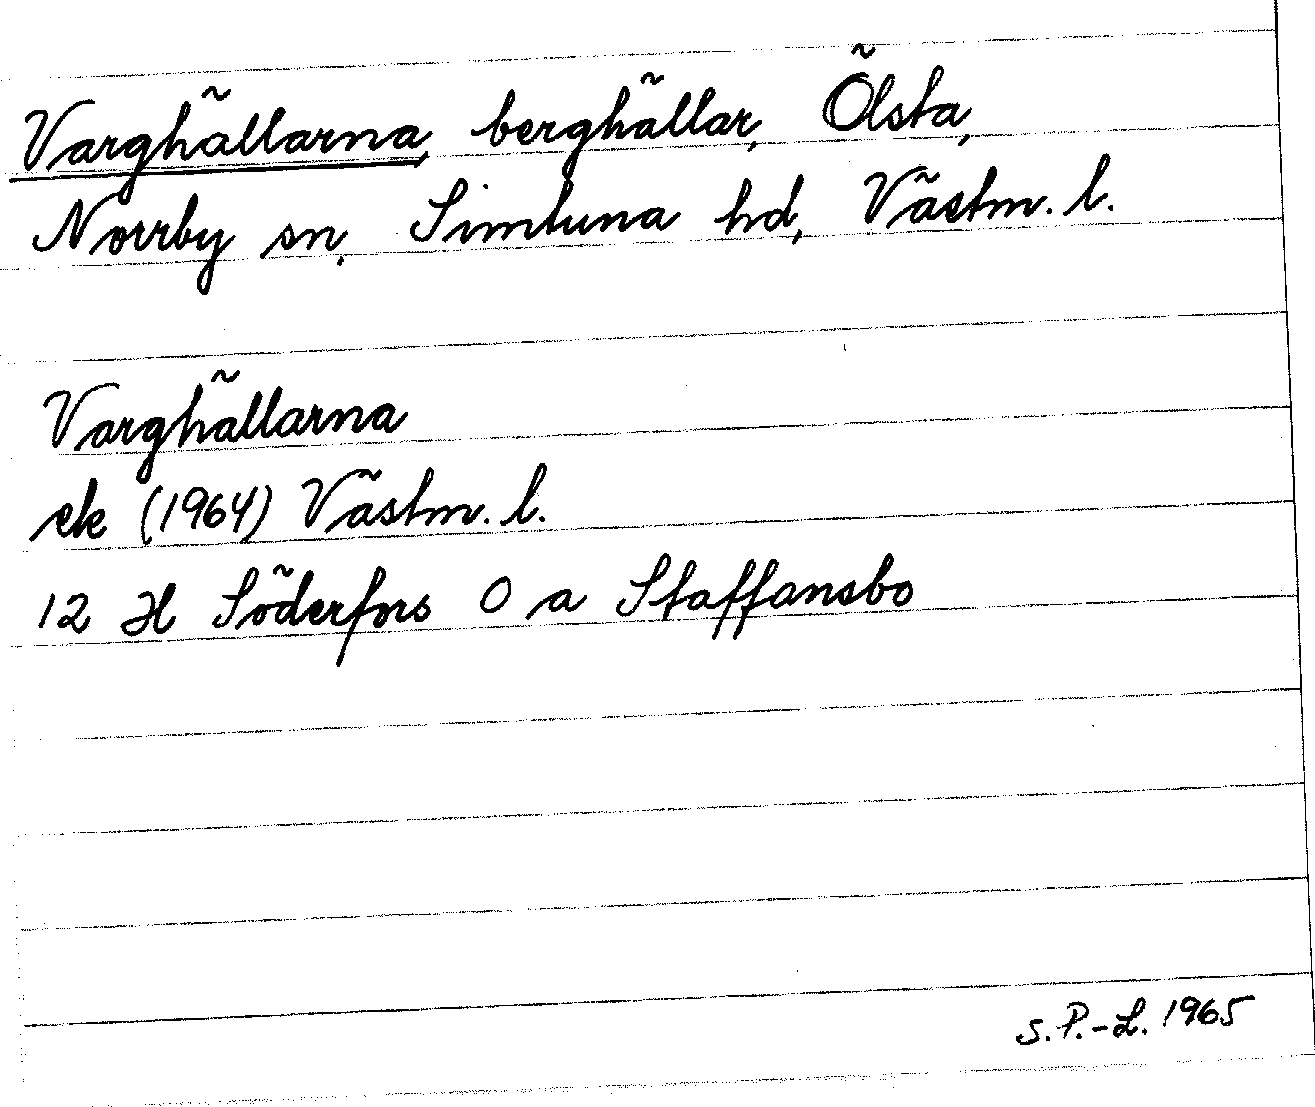 Varghällarna, berghällar, Ölsta,
Norrby sn, Simtuna hd, Västm. l.
Varghällarna
ek (1964) Västm. l.
12 H Söderfors 0 a Staffansbo
S.P.-L. 1965